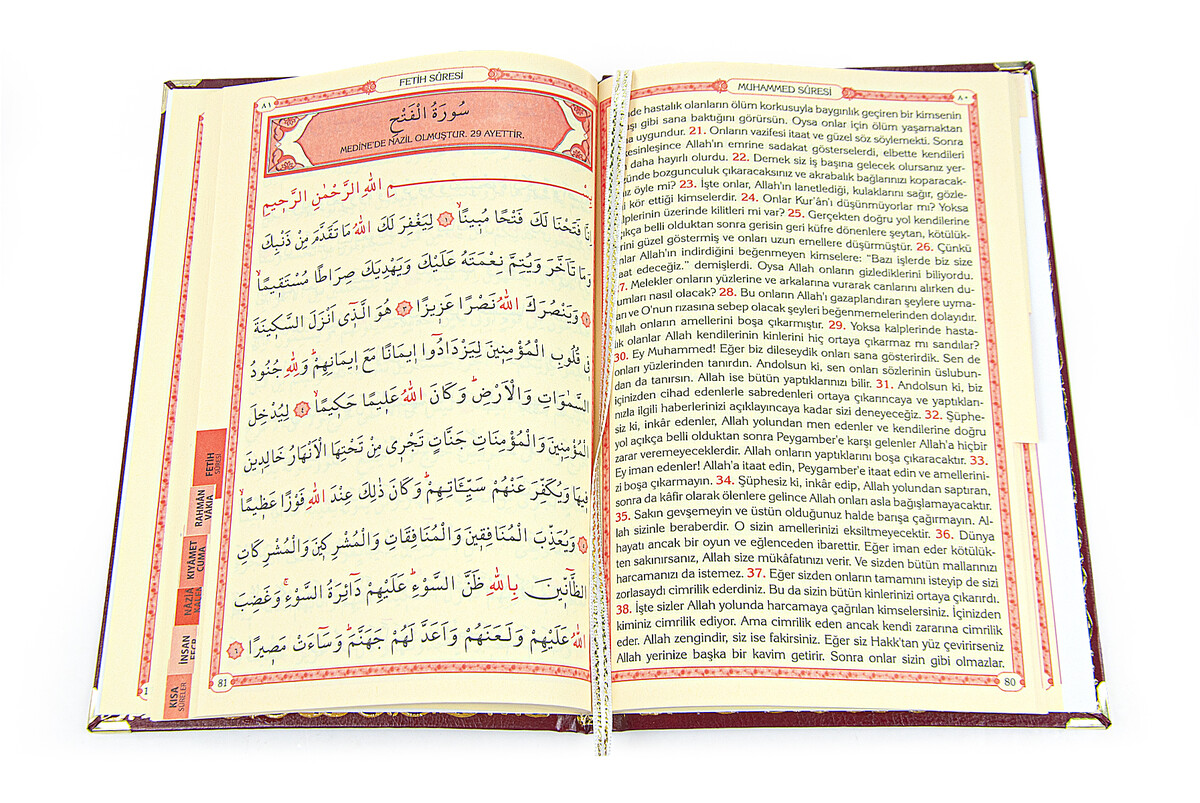 FETİH SÛRESİ
٨١
سُورَةُ الْفَتْحِ
MEDİNE'DE NAZİL OLMUŞTUR. 29 AYETTİR.
مِ اللهِ الرَّحْمٰنِ الرَّحِيمِ
اِنَّا فَتَحْنَا لَكَ فَتْحًا مُبِينًاۙ ﴿١﴾ لِيَغْفِرَ لَكَ اللهُ مَا تَقَدَّمَ مِنْ ذَنْبِكَ
وَمَا تَاَخَّرَ وَيُتِمَّ نِعْمَتَهُ عَلَيْكَ وَيَهْدِيَكَ صِرَاطًا مُسْتَقِيمًاۙ
﴿٢﴾ وَيَنْصُرَكَ اللهُ نَصْرًا عَزِيزًا ﴿٣﴾ هُوَ الَّذِٓي اَنْزَلَ السَّكِينَةَ
فِي قُلُوبِ الْمُؤْمِنِينَ لِيَزْدَادُٓوا اِيمَانًا مَعَ اِيمَانِهِمْۜ وَلِلّٰهِ جُنُودُ
السَّمٰوَاتِ وَالْاَرْضِۜ وَكَانَ اللهُ عَلِيمًا حَكِيمًاۙ ﴿٤﴾ لِيُدْخِلَ
الْمُؤْمِنِينَ وَالْمُؤْمِنَاتِ جَنَّاتٍ تَجْرِي مِنْ تَحْتِهَا الْاَنْهَارُ خَالِدِينَ
فِيهَا وَيُكَفِّرَ عَنْهُمْ سَيِّـَٔاتِهِمْۜ وَكَانَ ذٰلِكَ عِنْدَ اللهِ فَوْزًا عَظِيمًاۙ
﴿٥﴾ وَيُعَذِّبَ الْمُنَافِقِينَ وَالْمُنَافِقَاتِ وَالْمُشْرِكِينَ وَالْمُشْرِكَاتِ
الظَّٓانِّينَ بِاللهِ ظَنَّ السَّوْءِۜ عَلَيْهِمْ دَٓائِرَةُ السَّوْءِۚ وَغَضِبَ
اللهُ عَلَيْهِمْ وَلَعَنَهُمْ وَاَعَدَّ لَهُمْ جَهَنَّمَۜ وَسَٓاءَتْ مَصِيرًا ﴿٦﴾
81
FETİH
SÛRESİ
RAHMÂN
VÂKIA
KIYÂMET
CUMA
NÂZİA
İNSAN
KISA
SÛRELER
MUHAMMED SÛRESİ
٨٠
de hastalık olanların ölüm korkusuyla baygınlık geçiren bir kimsenin
şı gibi sana baktığını görürsün. Oysa onlar için ölüm yaşamaktan
a uygundur. 21. Onların vazifesi itaat ve güzel söz söylemekti. Sonra
esinleşince Allah'ın emrine sadakat gösterselerdi, elbette kendileri
daha hayırlı olurdu. 22. Demek siz iş başına gelecek olursanız yer-
ünde bozgunculuk çıkaracaksınız ve akrabalık bağlarınızı koparacak-
ız öyle mi? 23. İşte onlar, Allah'ın lanetlediği, kulaklarını sağır, gözle-
i kör ettiği kimselerdir. 24. Onlar Kur'ân'ı düşünmüyorlar mı? Yoksa
lplerinin üzerinde kilitleri mi var? 25. Gerçekten doğru yol kendilerine
çıkça belli olduktan sonra gerisin geri küfre dönenlere şeytan, kötülük-
rini güzel göstermiş ve onları uzun emellere düşürmüştür. 26. Çünkü
nlar Allah'ın indirdiğini beğenmeyen kimselere: "Bazı işlerde biz size
aat edeceğiz." demişlerdi. Oysa Allah onların gizlediklerini biliyordu.
27. Melekler onların yüzlerine ve arkalarına vurarak canlarını alırken du-
umları nasıl olacak? 28. Bu onların Allah'ı gazaplandıran şeylere uyma-
arı ve O'nun rızasına sebep olacak şeyleri beğenmemelerinden dolayıdır.
Allah onların amellerini boşa çıkarmıştır. 29. Yoksa kalplerinde hasta-
lık olanlar Allah kendilerinin kinlerini hiç ortaya çıkarmaz mı sandılar?
30. Ey Muhammed! Eğer biz dileseydik onları sana gösterirdik. Sen de
onları yüzlerinden tanırdın. Andolsun ki, sen onları sözlerinin üslubun-
dan da tanırsın. Allah ise bütün yaptıklarınızı bilir. 31. Andolsun ki, biz
içinizden cihad edenlerle sabredenleri ortaya çıkarıncaya ve yaptıkları-
nızla ilgili haberlerinizi açıklayıncaya kadar sizi deneyeceğiz. 32. Şüphe-
siz ki, inkâr edenler, Allah yolundan men edenler ve kendilerine doğru
yol açıkça belli olduktan sonra Peygamber'e karşı gelenler Allah'a hiçbir
zarar veremeyeceklerdir. Allah onların yaptıklarını boşa çıkaracaktır. 33.
Ey iman edenler! Allah'a itaat edin, Peygamber'e itaat edin ve amellerini-
zi boşa çıkarmayın. 34. Şüphesiz ki, inkâr edip, Allah yolundan saptıran,
sonra da kâfir olarak ölenlere gelince Allah onları asla bağışlamayacaktır.
35. Sakın gevşemeyin ve üstün olduğunuz halde barışa çağırmayın. Al-
lah sizinle beraberdir. O sizin amellerinizi eksiltmeyecektir. 36. Dünya
hayatı ancak bir oyun ve eğlenceden ibarettir. Eğer iman eder kötülük-
ten sakınırsanız, Allah size mükâfatınızı verir. Ve sizden bütün mallarınızı
harcamanızı da istemez. 37. Eğer sizden onların tamamını isteyip de sizi
zorlasaydı cimrilik ederdiniz. Bu da sizin bütün kinlerinizi ortaya çıkarırdı.
38. İşte sizler Allah yolunda harcamaya çağrılan kimselersiniz. İçinizden
kiminiz cimrilik ediyor. Ama cimrilik eden ancak kendi zararına cimrilik
eder. Allah zengindir, siz ise fakirsiniz. Eğer siz Hakk'tan yüz çevirirseniz
Allah yerinize başka bir kavim getirir. Sonra onlar sizin gibi olmazlar.
80